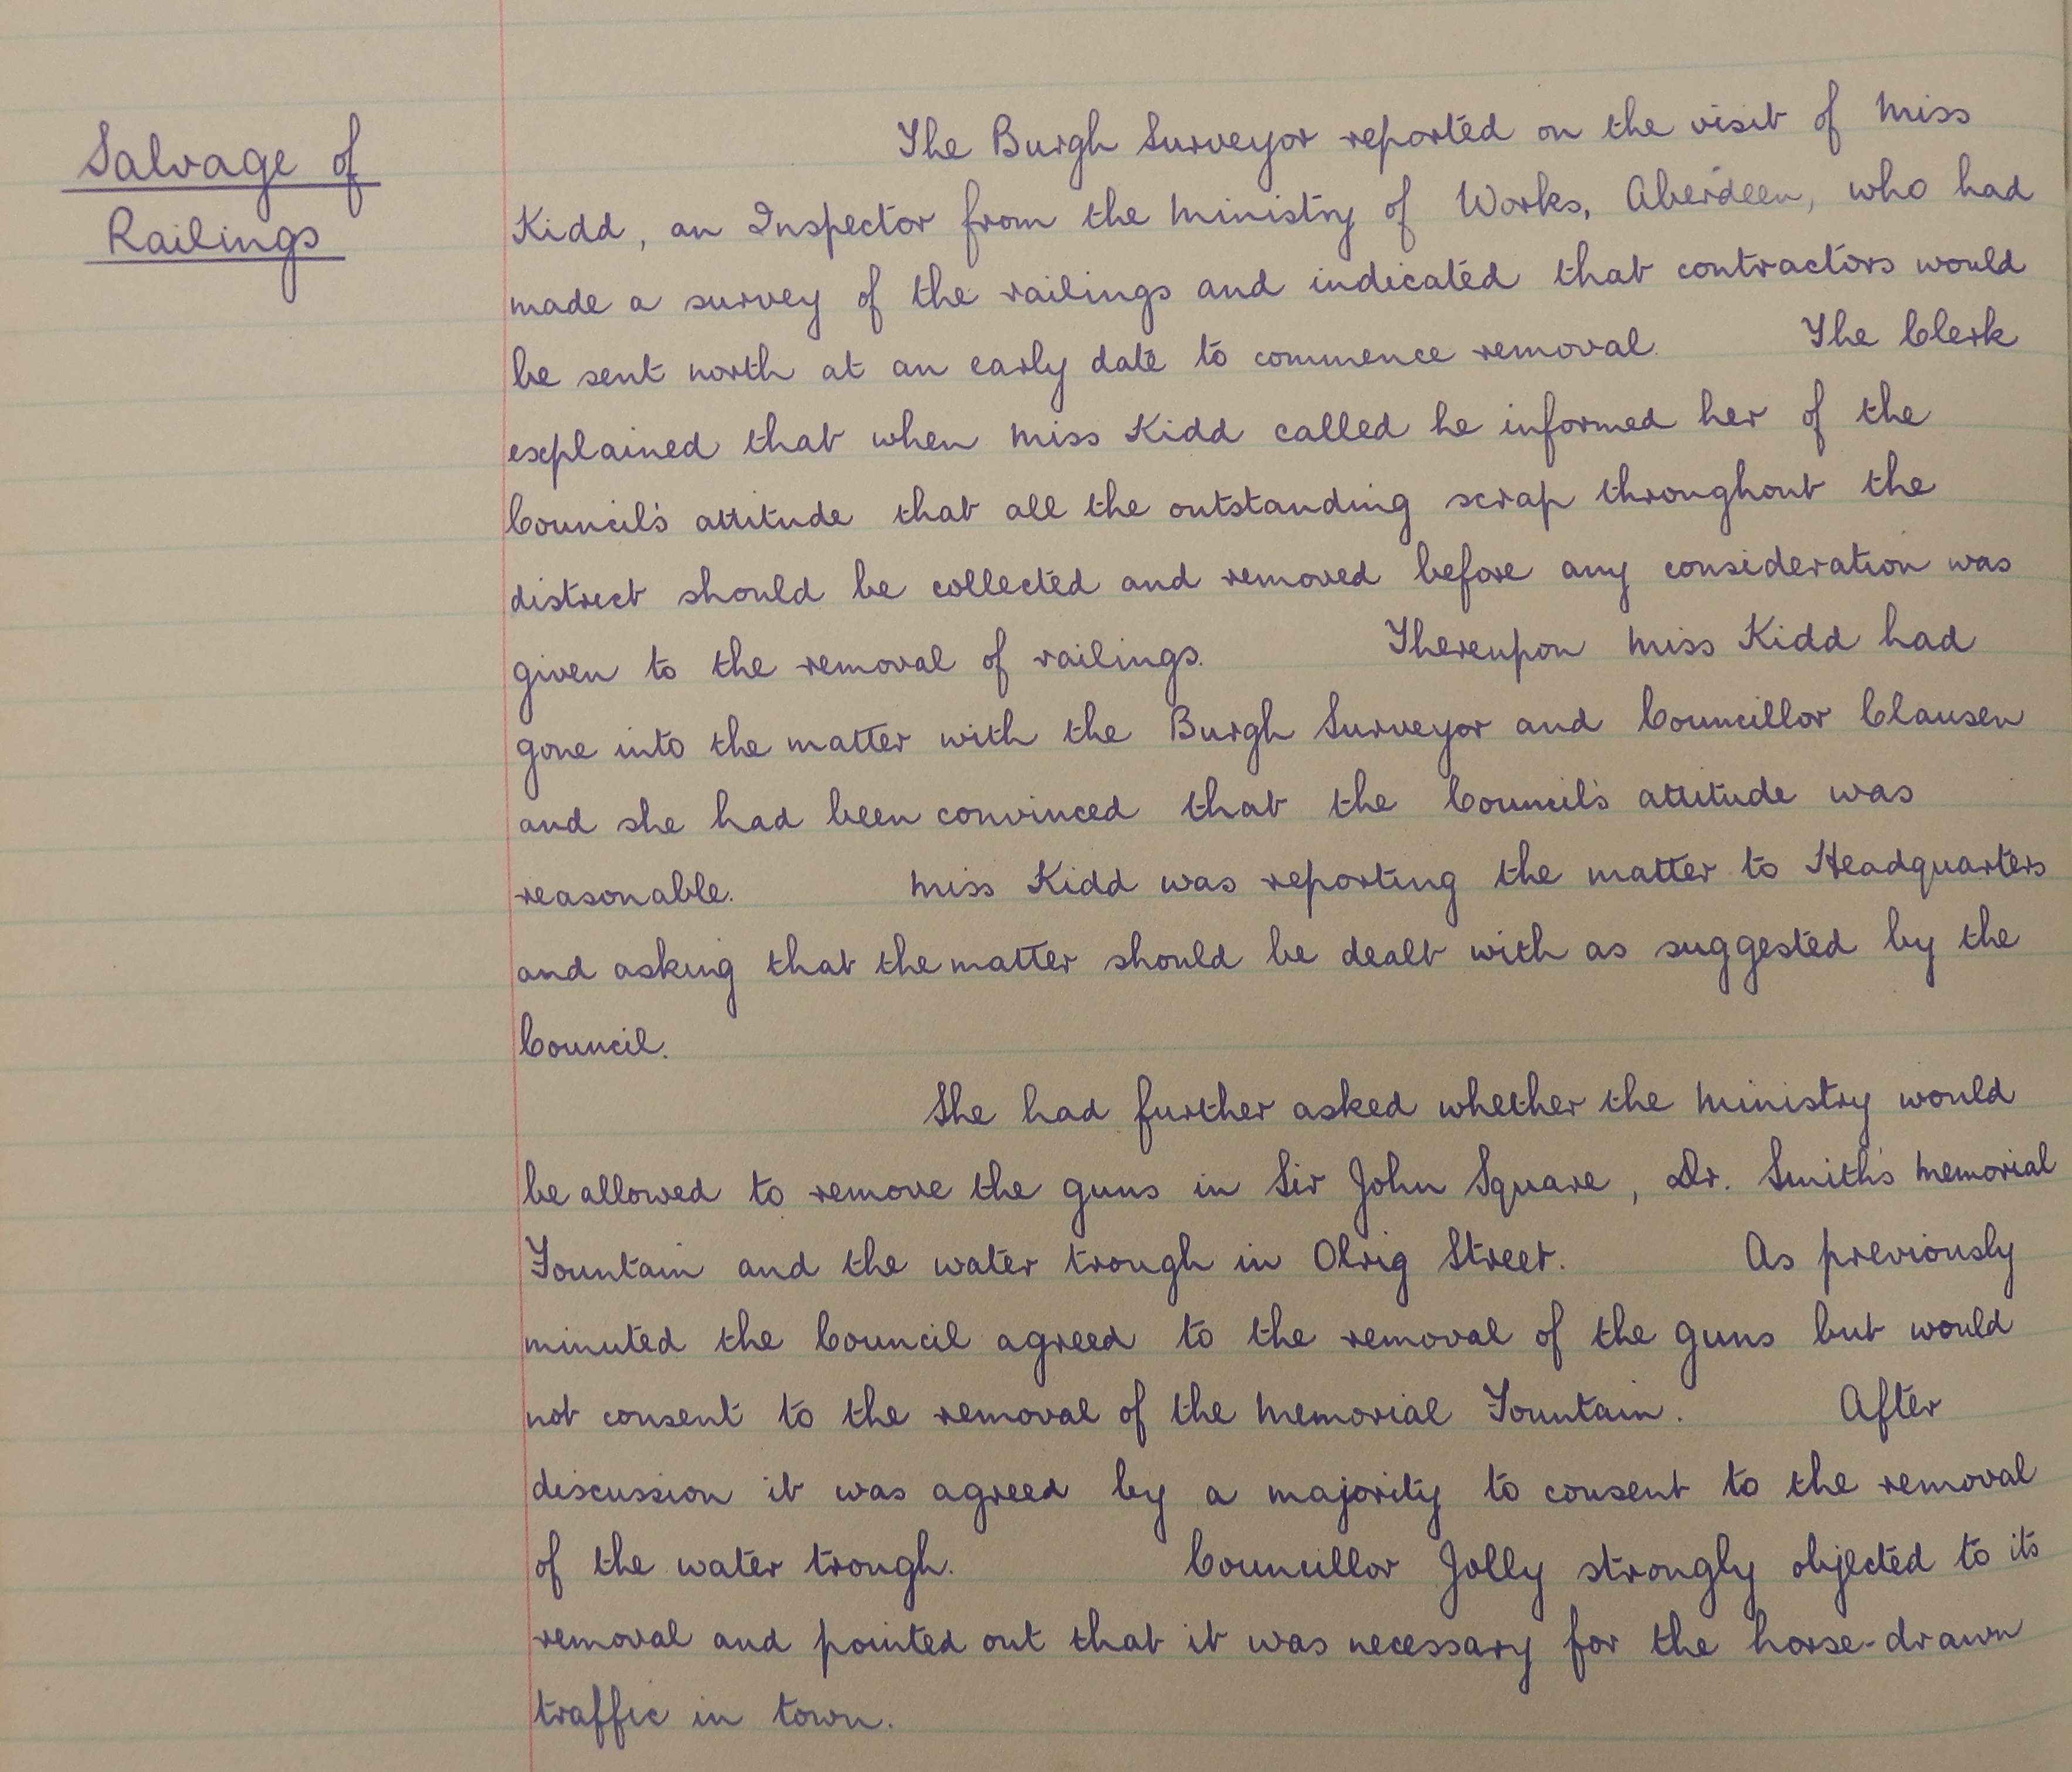 Salvage of
Railings
The Burgh Surveyor reported on the visit of Miss
Kidd, an Inspector from the Ministry of Works, Aberdeen, who had
made a survey of the railings and indicated that contractors would
be sent north at an early date to commence removal. The Clerk
explained that when Miss Kidd called he informed her of the
Council's attitude that all the outstanding scrap throughout the
district should be collected and removed before any consideration was
given to the removal of railings. Thereupon Miss Kidd had
gone into the matter with the Burgh Surveyor and Councillor Clausen
and she had been convinced that the Council's attitude was
reasonable. Miss Kidd was reporting the matter to Headquarters
and asking that the matter should be dealt with as suggested by the
Council.
She had further asked whether the Ministry would
be allowed to remove the guns in Sir John Square, Dr. Smith's Memorial
Fountain and the water trough in Olrig Street. As previously
minuted the Council agreed to the removal of the guns but would
not consent to the removal of the Memorial Fountain. After
discussion it was agreed by a majority to consent to the removal
of the water trough. Councillor Jolly strongly objected to its
removal and pointed out that it was necessary for the horse-drawn
traffic in town.